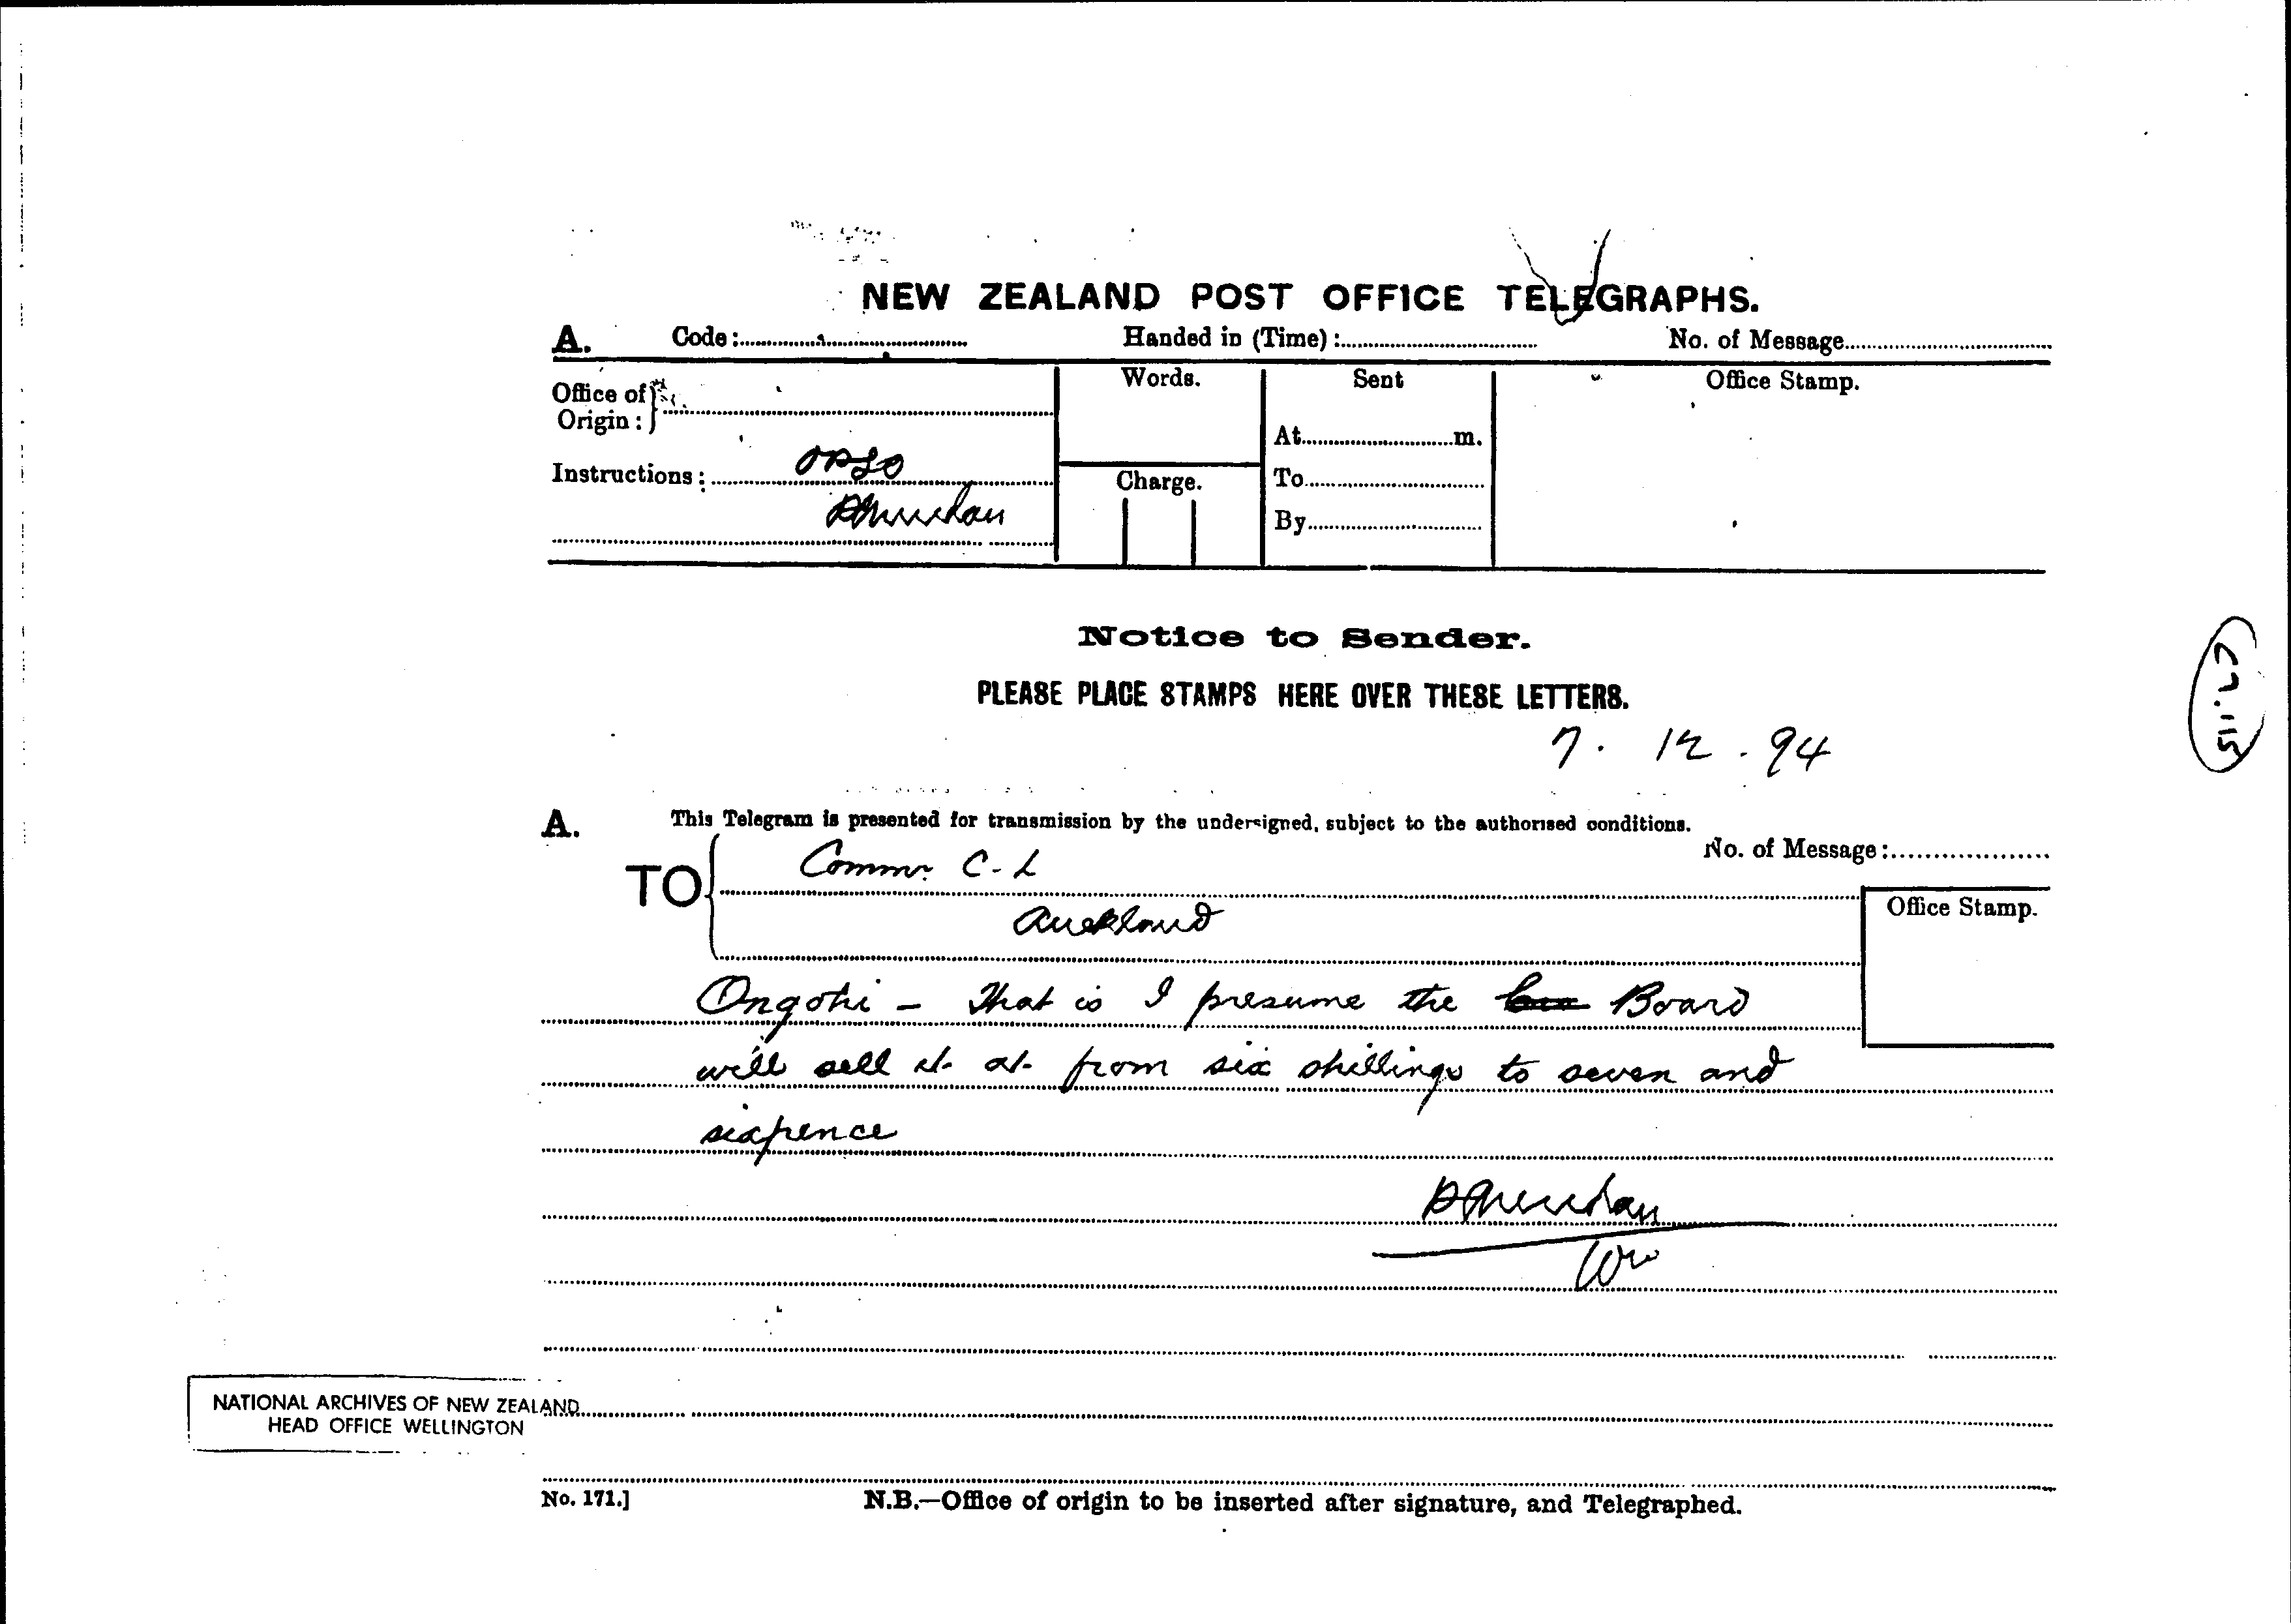 NEW ZEALAND POST OFFICE TELEGRAPHS.
A. Code:
Handed in (Time):
No. of Message
Office of Origin:
Words.
Sent
Office Stamp.
At m.
Instructions: OPSO
Charge.
To
By
Notice to Sender.
PLEASE PLACE STAMPS HERE OVER THESE LETTERS.
7. 12. 94
A. This Telegram is presented for transmission by the undersigned, subject to the authorised conditions.
No. of Message:
TO Commr. C-L
Auckland
Office Stamp.
Ongohi - That is I presume the Board
will sell it at from six shillings to seven and
sixpence
NATIONAL ARCHIVES OF NEW ZEALAND
HEAD OFFICE WELLINGTON
No. 171.]
N.B.—Office of origin to be inserted after signature, and Telegraphed.